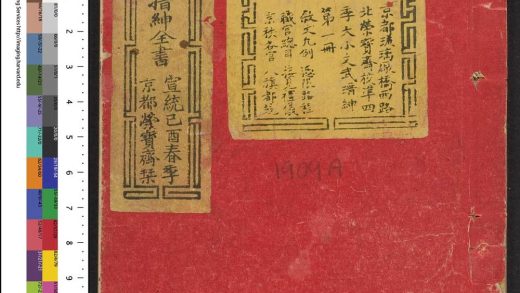 京都琉璃廠橋西路
北榮寶齋校準四
季大小文武搢紳
第一冊
職官總目
京秩各官 八旗都統
搢紳全書
宣統己酉春季
京都榮寶齋栞
1909A
2
3
4
5
6
7
8
9